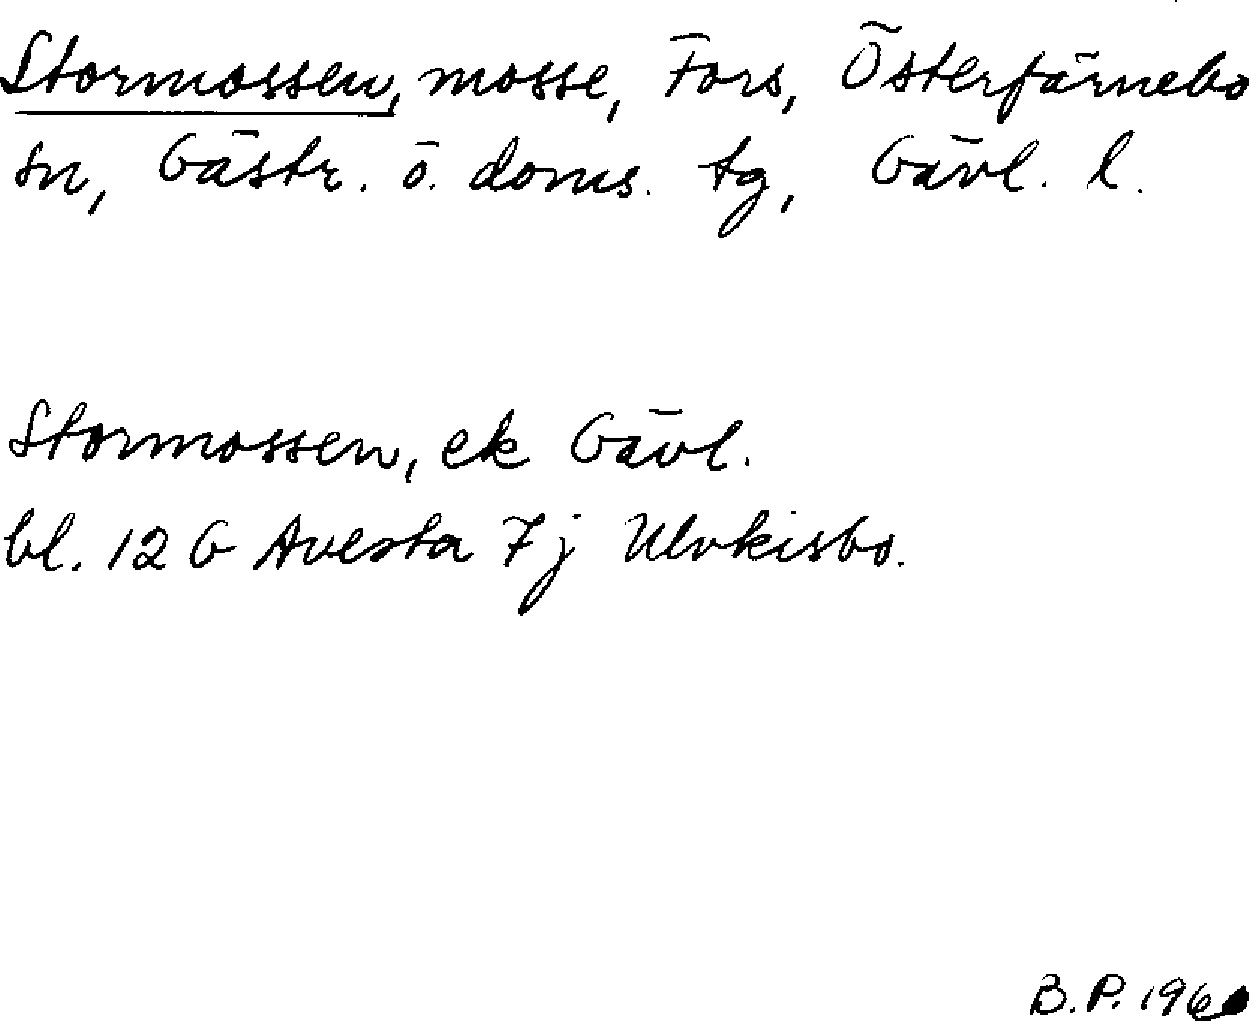 Stormossen, mosse, Fors, Österfärnebo
sn, Gästr. ö. doms. tg, Gävl. l.
Stormossen, ek Gävl.
bl. 12 G Avesta 7j Ulvkisbo.
B.P.